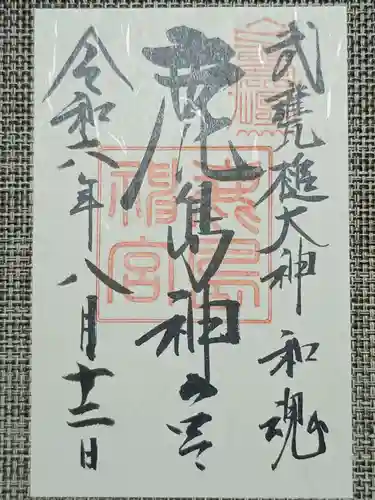 武甕槌大神 和魂
鹿島神宮
令和六年八月十二日
鹿島
神宮